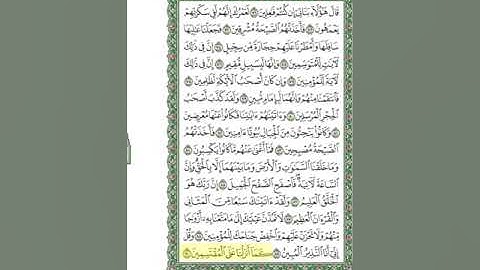 قَالَ هَٰٓؤُلَآءِ بَنَاتِىٓ إِن كُنتُمْ فَٰعِلِينَ ٧١ لَعَمْرُكَ إِنَّهُمْ لَفِى سَكْرَتِهِمْ
يَعْمَهُونَ ٧٢ فَأَخَذَتْهُمُ ٱلصَّيْحَةُ مُشْرِقِينَ ٧٣ فَجَعَلْنَا عَٰلِيَهَا
سَافِلَهَا وَأَمْطَرْنَا عَلَيْهِمْ حِجَارَةً مِّن سِجِّيلٍ ٧٤ إِنَّ فِى ذَٰلِكَ
لَءَايَٰتٍ لِّلْمُتَوَسِّمِينَ ٧٥ وَإِنَّهَا لَبِسَبِيلٍ مُّقِيمٍ ٧٦ إِنَّ فِى ذَٰلِكَ
لَءَايَةً لِّلْمُؤْمِنِينَ ٧٧ وَإِن كَانَ أَصْحَٰبُ ٱلْأَيْكَةِ لَظَٰلِمِينَ ٧٨
فَٱنتَقَمْنَا مِنْهُمْ وَإِنَّهُمَا لَبِإِمَامٍ مُّبِينٍ ٧٩ وَلَقَدْ كَذَّبَ أَصْحَٰبُ
ٱلْحِجْرِ ٱلْمُرْسَلِينَ ٨٠ وَءَاتَيْنَٰهُمْ ءَايَٰتِنَا فَكَانُوا۟ عَنْهَا مُعْرِضِينَ
٨١ وَكَانُوا۟ يَنْحِتُونَ مِنَ ٱلْجِبَالِ بُيُوتًا ءَامِنِينَ ٨٢ فَأَخَذَتْهُمُ
ٱلصَّيْحَةُ مُصْبِحِينَ ٨٣ فَمَآ أَغْنَىٰ عَنْهُم مَّا كَانُوا۟ يَكْسِبُونَ ٨٤
وَمَا خَلَقْنَا ٱلسَّمَٰوَٰتِ وَٱلْأَرْضَ وَمَا بَيْنَهُمَآ إِلَّا بِٱلْحَقِّ وَإِنَّ
ٱلسَّاعَةَ لَءَاتِيَةٌ فَٱصْفَحِ ٱلصَّفْحَ ٱلْجَمِيلَ ٨٥ إِنَّ رَبَّكَ هُوَ
ٱلْخَلَّٰقُ ٱلْعَلِيمُ ٨٦ وَلَقَدْ ءَاتَيْنَٰكَ سَبْعًا مِّنَ ٱلْمَثَانِى
وَٱلْقُرْءَانَ ٱلْعَظِيمَ ٨٧ لَا تَمُدَّنَّ عَيْنَيْكَ إِلَىٰ مَا مَتَّعْنَا بِهِۦٓ أَزْوَٰجًا
مِّنْهُمْ وَلَا تَحْزَنْ عَلَيْهِمْ وَٱخْفِضْ جَنَاحَكَ لِلْمُؤْمِنِينَ ٨٨ وَقُلْ
إِنِّىٓ أَنَا ٱلنَّذِيرُ ٱلْمُبِينُ ٨٩ كَمَآ أَنزَلْنَا عَلَى ٱلْمُقْتَسِمِينَ ٩٠